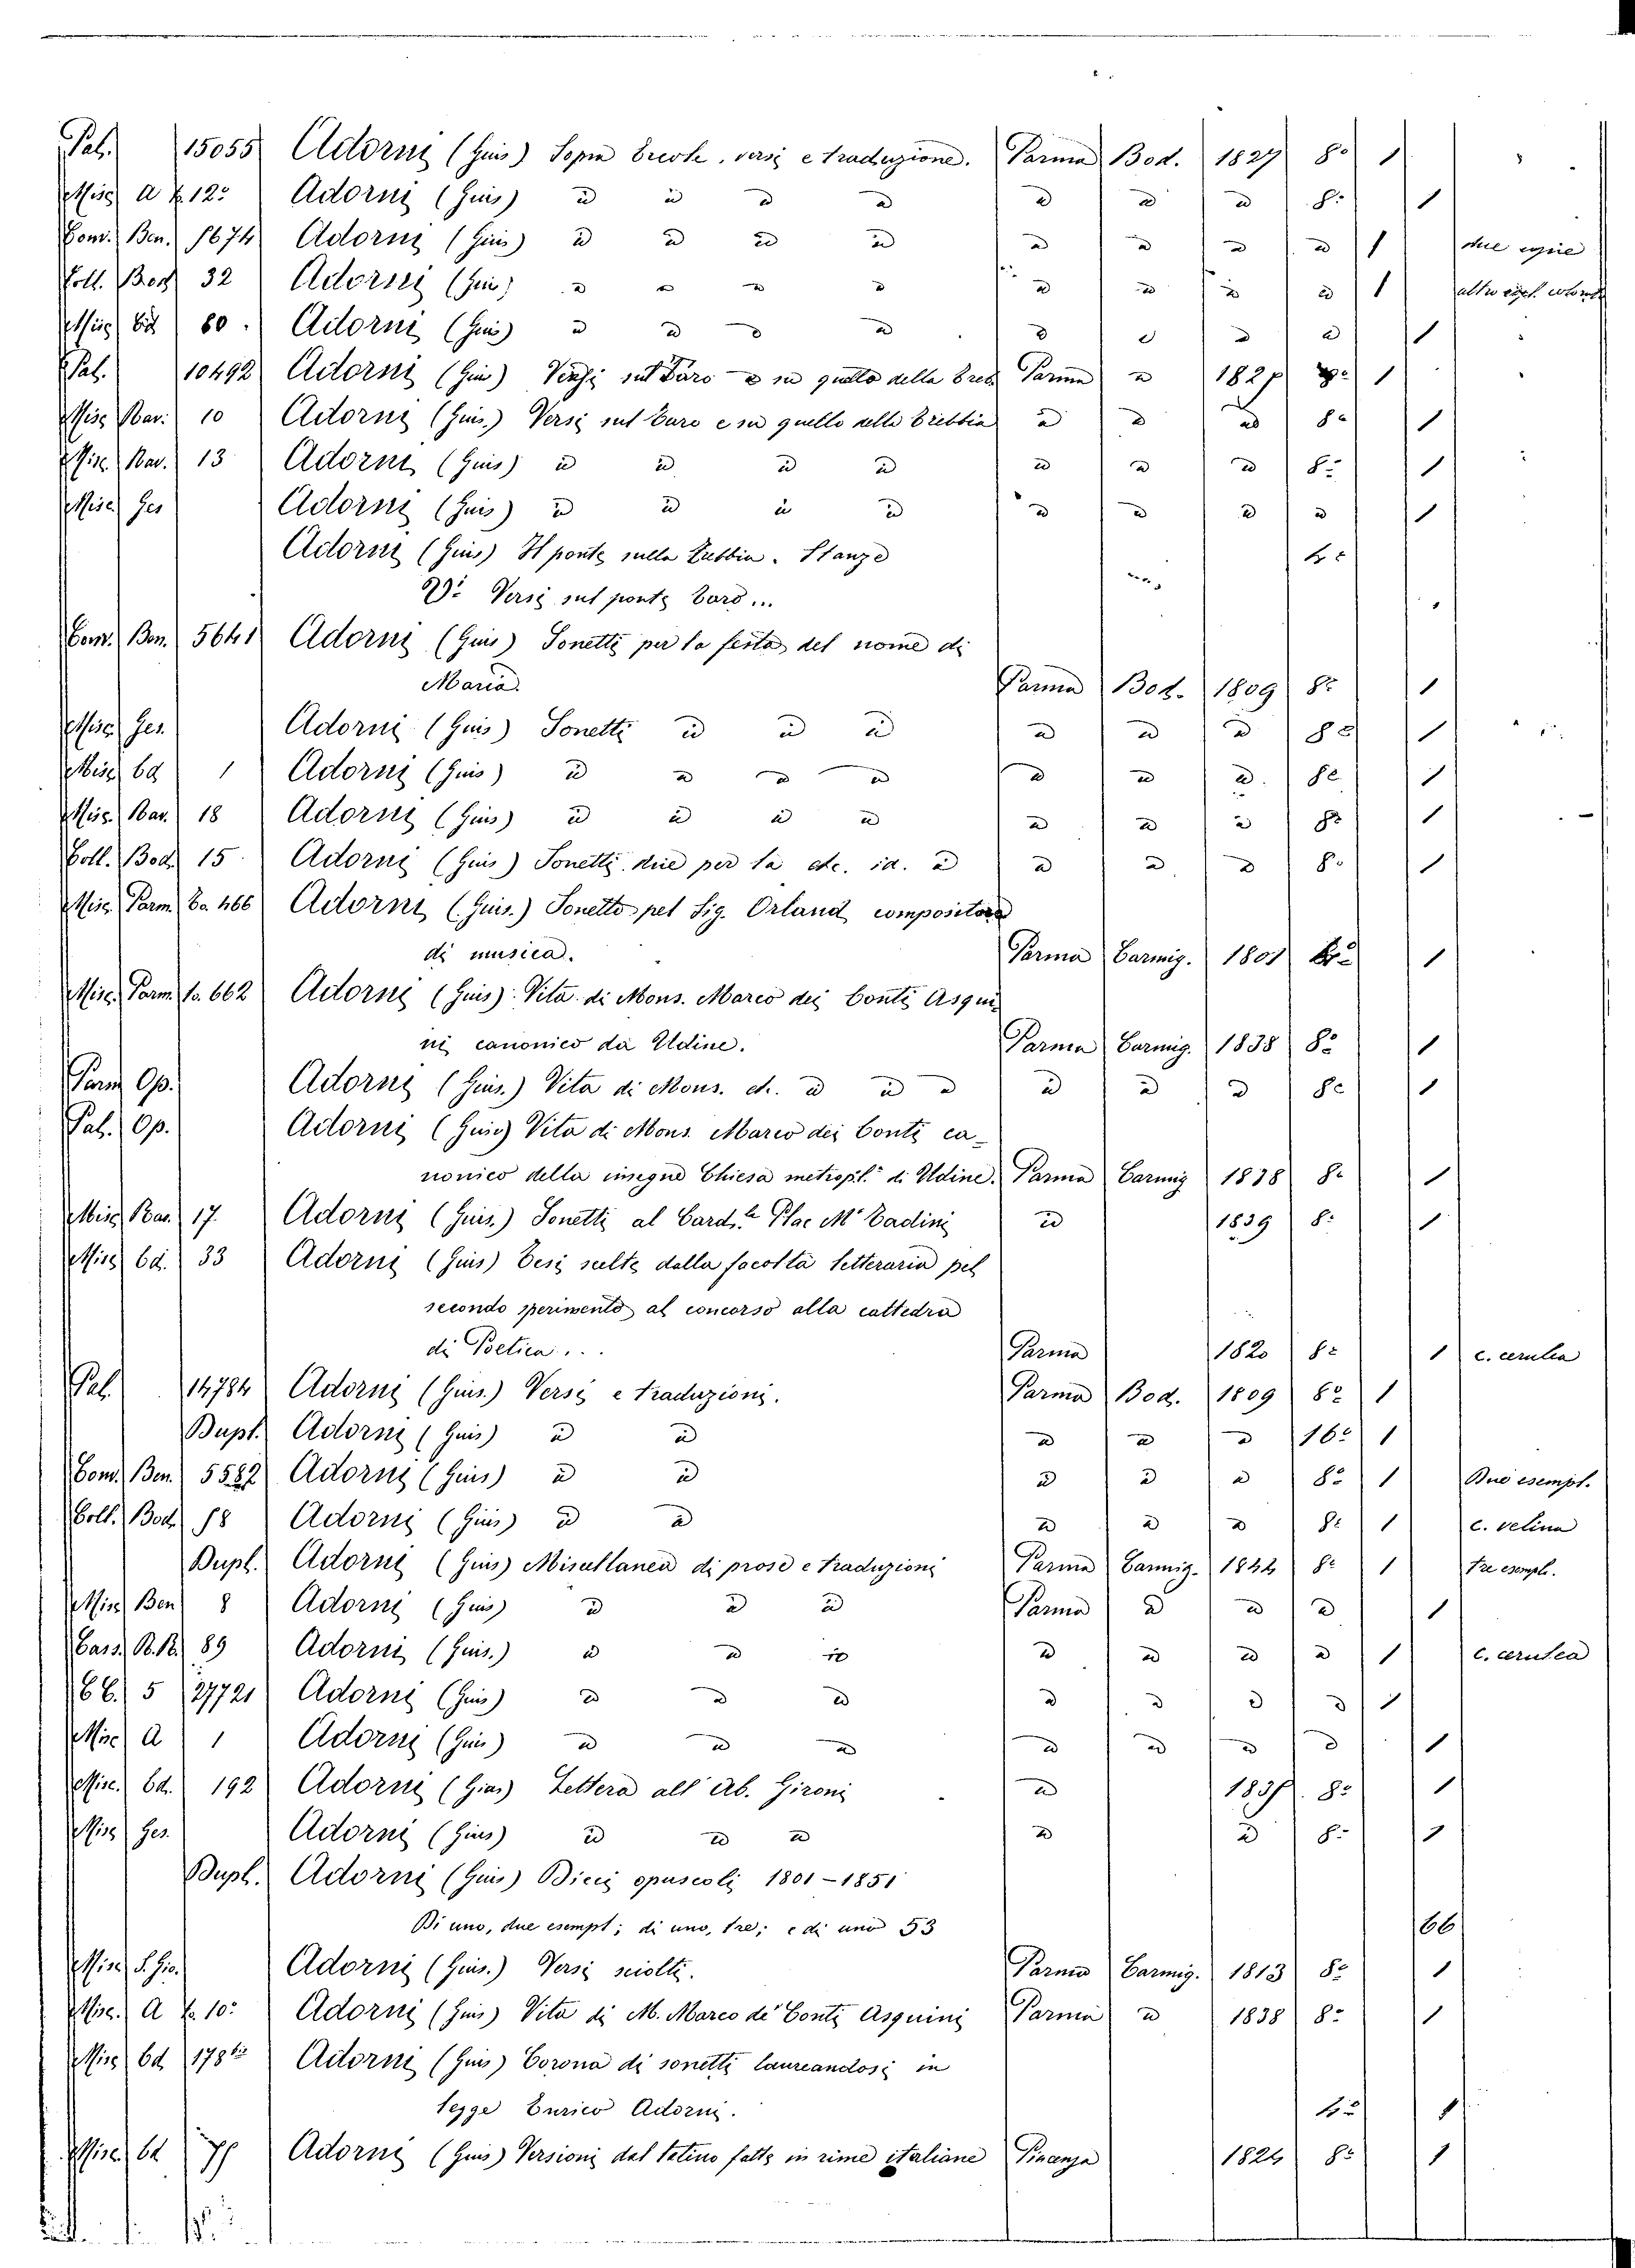 Pal. 15055 Adorni (Gius) Sopra brevte, versi e traduzione. Parma Bod. 1827 8º 1
Misc. A f. 12º Adorni (Gius) id id id id id id id 8º 1
Conv. Ben. 1674 Adorni (Gius) id id id id id id id id 1 due copie
Coll. Bod 32 Adorni (Gius) id id id id id id id id 1
Misc. Cd 80. Adorni (Gius) id id id id id id id id 1
Pal. 10492 Adorni (Gius) Versi sul Taro e su quello della Parma id 182 1
Misc. Bar. 10 Adorni (Gius.) Versi sul Taro e su quello della Trebbia id id id 8º 1
Misc. Bar. 13 Adorni (Gius) id id id id id id id 8º 1
Misc. Ges Adorni (Gius) id id id id id id id id 1
Adorni (Gius) Il ponte sulla Trebbia. Stanze 4º
V: Versi sul ponte Taro ...
Conv. Ben. 5641 Adorni (Gius) Sonetti per la festa del nome di
Maria. Parma Bod. 1809 8º 1
Misc. Ges. Adorni (Gius) Sonetti id id id id id id 8º 1
Misc. Cd 1 Adorni (Gius) id id id id id id id. 8º 1
Misc. Bar. 18 Adorni (Gius) id id id id id id id 8º 1
Coll. Bod. 15 Adorni (Gius) Sonetti due per la etc. id. id id id id 8º 1
Misc. Parm. Co. 466 Adorni (Gius.) Sonetto pel Sig. Orland compositore
di musica. Parma Carmig. 1801 1
Misc. Parm. fo. 662 Adorni (Gius). Vita di Mons. Marco dei Conti Asqui-
ni canonico da Udine. Parma Carmig. 1838 8º 1
Parm Op. Adorni (Gius.) Vita di Mons. etc. id id id id id id 8º 1
Pal. Op. Adorni (Gius) Vita di Mons. Marco dei Conti ca-
nonico della insigne Chiesa metropl.ª di Udine. Parma Carmig 1838 8º 1
Misc. Bar. 17. Adorni (Gius.) Sonetti al Card.le Plac Mª Tadini id 1839 8º 1
Misc. Cd. 33 Adorni (Gius) Tesi scelte dalla facoltà letteraria pel
secondo sperimento al concorso alla cattedra
di Poetica... Parma 1820 8º 1 c. cerulea
Pal. 14784 Adorni (Gius.) Versi e traduzioni. Parma Bod. 1809 8º 1
Dupl. Adorni (Gius) id id id id id 16º 1
Conv. Ben. 5582 Adorni (Gius) id id id id id 8º 1 Due esempl.
Coll. Bod. 18 Adorni (Gius) id id id id id 8º 1 c. velina
Dupl. Adorni (Gius) Miscellanea di prose e traduzioni Parma Carmig. 1844 8º 1 Tre esempl.
Misc. Ben 8 Adorni (Gius) id id id Parma id id id 1
Cass. B.R. 89 Adorni (Gius.) id id id id id id id 1 c. cerulea
CC. 5 27721 Adorni (Gius) id id id id id id id 1
Misc. A 1 Adorni (Gius) id id id id id id id 1
Misc. Cd. 192 Adorni (Gius) Lettera all' Ab. Gironi id 1837. 8º 1
Misc. Ges. Adorni (Gius) id id id id id 8º 1
Dupl. Adorni (Gius) Dieci opuscoli 1801 - 1851
Di uno, due esempl; di uno, tre; e di uno 53 66
Misc. S. Gio. Adorni (Gius.) Versi sciolti. Parma Carmig. 1813 8º 1
Misc. A f. 10º Adorni (Gius) Vita di M. Marco de' Conti Asquini Parma id 1838 8º 1
Misc. Cd 178 bis Adorni (Gius) Corona di sonetti laureandosi in
legge Enrico Adorni. 4º 1
Misc. Cd Adorni (Gius) Versioni dal latino fatte in rime italiane Piacenza 1824 8º 1